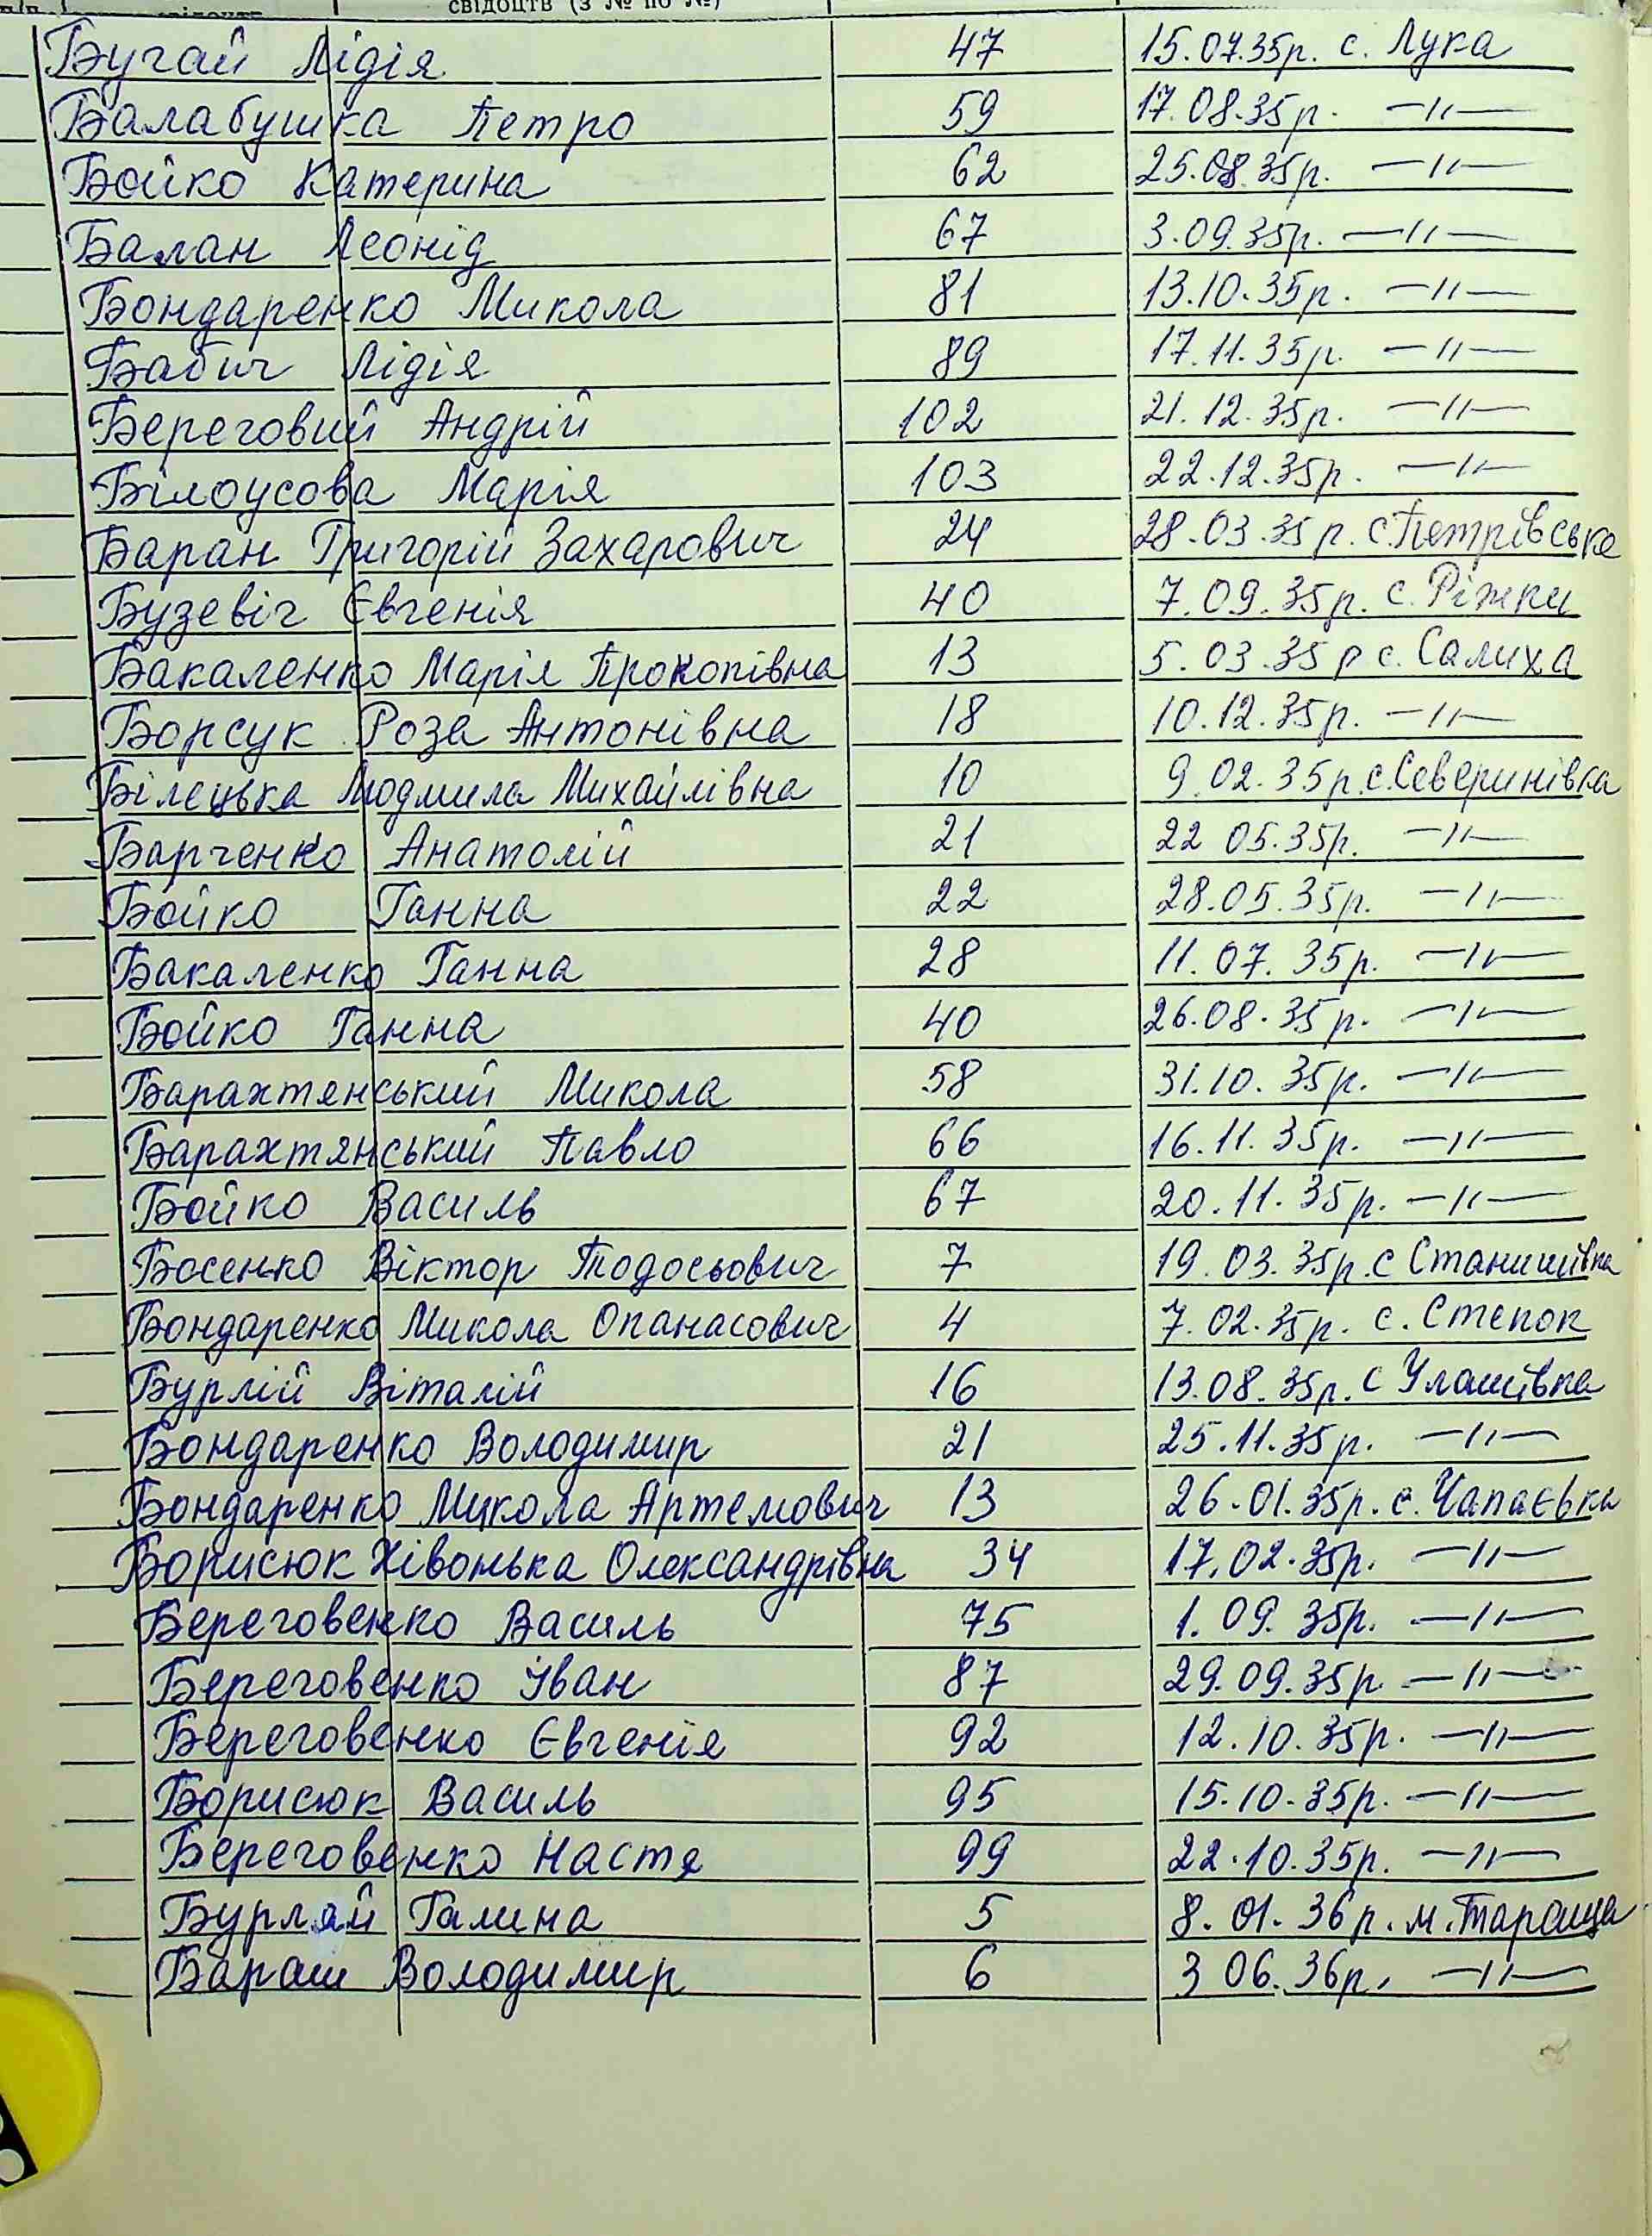 свідоцтв (з № по №)
Бугай Лідія 47 15.07.35р. с. Лука
Балабушка Петро 59 17.08.35р. —"—
Бойко Катерина 62 25.08.35р. —"—
Балан Леонід 67 3.09.35р. —"—
Бондаренко Микола 81 13.10.35р. —"—
Бабич Лідія 89 17.11.35р. —"—
Береговий Андрій 102 21.12.35р. —"—
Білоусова Марія 103 22.12.35р. —"—
Баран Григорій Захарович 24 28.03.35р. с.Петрівське
Бузевіч Євгенія 40 7.09.35р. с. Ріжки
Бакаленко Марія Прокопівна 13 5.03.35р с. Салиха
Борсук Роза Антонівна 18 10.12.35р. —"—
Білецька Людмила Михайлівна 10 9.02.35р.с.Северинівка
Барченко Анатолій 21 22 05.35р. —"—
Бойко Ганна 22 28.05.35р. —"—
Бакаленко Ганна 28 11.07.35р. —"—
Бойко Ганна 40 26.08.35р. —"—
Барахтенський Микола 58 31.10.35р. —"—
Барахтянський Павло 66 16.11.35р. —"—
Бойко Василь 67 20.11.35р. —"—
Босенко Віктор Тодосьович 7 19.03.35р.с Станишівка
Бондаренко Микола Опанасович 4 7.02.35р. с. Степок
Бурлій Віталій 16 13.08.35р. с Улашівка
Бондаренко Володимир 21 25.11.35р. —"—
Бондаренко Микола Артемович 13 26.01.35р. с. Чапаєвка
Борисюк Хівонька Олександрівна 34 17.02.35р. —"—
Береговенко Василь 75 1.09.35р. —"—
Береговенко Іван 87 29.09.35р. —"—
Береговенко Євгенія 92 12.10.35р. —"—
Борисюк Василь 95 15.10.35р. —"—
Береговенко Настя 99 22.10.35р. —"—
Бурлай Галина 5 8.01.36р. м.Тараща
Бараш Володимир 6 3 06.36р. —"—